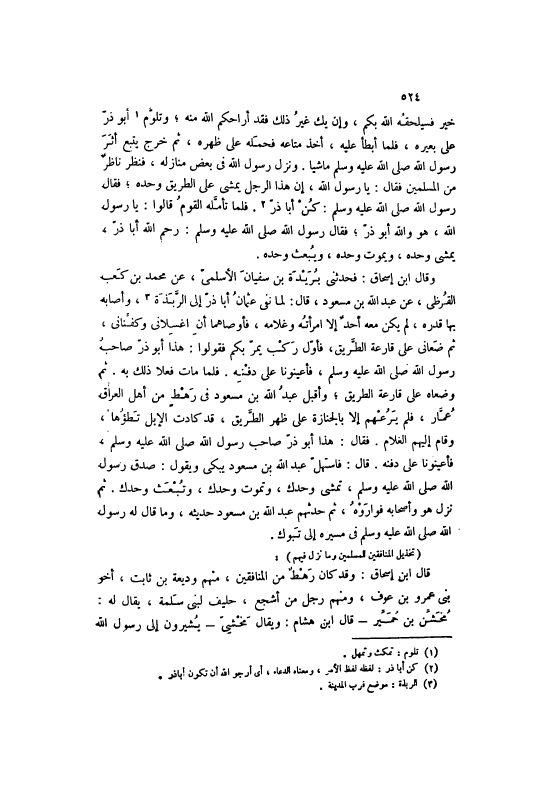 ٥٢٤
خير فسيلحقه الله بكم ، وإن يك غيرُ ذلك فقد أراحكم الله منه ؛ وتلوَّم ١ أبو ذرّ
على بعيره ، فلما أبطأ عليه ، أخذ متاعه فحمله على ظهره ، ثم خرج يتبع أثَرَ
رسول الله صلى الله عليه وسلم ماشيا . ونزل رسول الله فى بعض منازله ، فنظر ناظرٌ
من المسلمين فقال : يا رسول الله ، إن هذا الرجل يمشى على الطريق وحده ؛ فقال
رسول الله صلى الله عليه وسلم : كُنْ أبا ذرّ ٢ . فلما تأمَّله القومُ قالوا : يا رسول
الله ، هو والله أبو ذرّ ؛ فقال رسول الله صلى الله عليه وسلم : رحم الله أبا ذرّ ،
يمشى وحده ، ويموت وحده ، ويُبعث وحده .
وقال ابن إسحاق : فحدثنى بُرَيْدة بن سفيانَ الأسلمىّ ، عن محمد بن كَعْب
القُرظى ، عن عبد الله بن مسعود ، قال : لما نفى عثمانُ أبا ذرّ إلى الرَّبَذَة ٣ ، وأصابه
بها قدره ، لم يكن معه أحدٌ إلا امرأتُه وغلامه ، فأوصاهما أن اغسلانى وكفّنانى ،
ثم ضعانى على قارعة الطَّريق، فأوّل رَكْب يمرّ بكم فقولوا : هذا أبو ذرّ صاحبُ
رسول الله صلى الله عليه وسلم ، فأعينونا على دفْنِه . فلما مات فعلا ذلك به . ثم
وضعاه على قارعة الطريق ؛ وأقبل عبدُ الله بن مسعود فى رَهْطٍ من أهل العراق
عُمَّار ، فلم يَرُعْهم إلا بالجنازة على ظهر الطَّريق ، قد كادت الإبل تَطَؤُها ،
وقام إليهم الغلام . فقال : هذا أبو ذرّ صاحب رسول الله صلى الله عليه وسلم ،
فأعينونا على دفنه . قال : فاستهلّ عبد الله بن مسعود يبكى ويقول : صدق رسول
الله صلى الله عليه وسلم ، تمشى وحدك ، وتموت وحدك ، وتُبْعَث وحدك . ثم
نزل هو وأصحابه فوارَوْهُ ، ثم حدثهم عبد الله بن مسعود حديثه ، وما قال له رسول
الله صلى الله عليه وسلم فى مسيره إلى تبوك .
( تخذيل المنافقين المسلمين وما نزل فيهم ) :
قال ابن إسحاق : وقد كان رَهْطٌ من المنافقين ، منهم وديعة بن ثابت ، أخو
بنى عمرو بن عوف ، ومنهم رجل من أشجع ، حليف لبنى سلمة ، يقال له :
مُخَشِّن بن حُمَيِّر – قال ابن هشام : ويقال مَخْشِىّ – يُشيرون إلى رسول الله
(١) تلوم : تمكث وتمهل .
(٢) كن أبا ذر : لفظه لفظ الأمر ، ومعناه الدعاء ، أى أرجو الله أن تكون أباذر .
(٣) الربذة : موضع قرب المدينة .